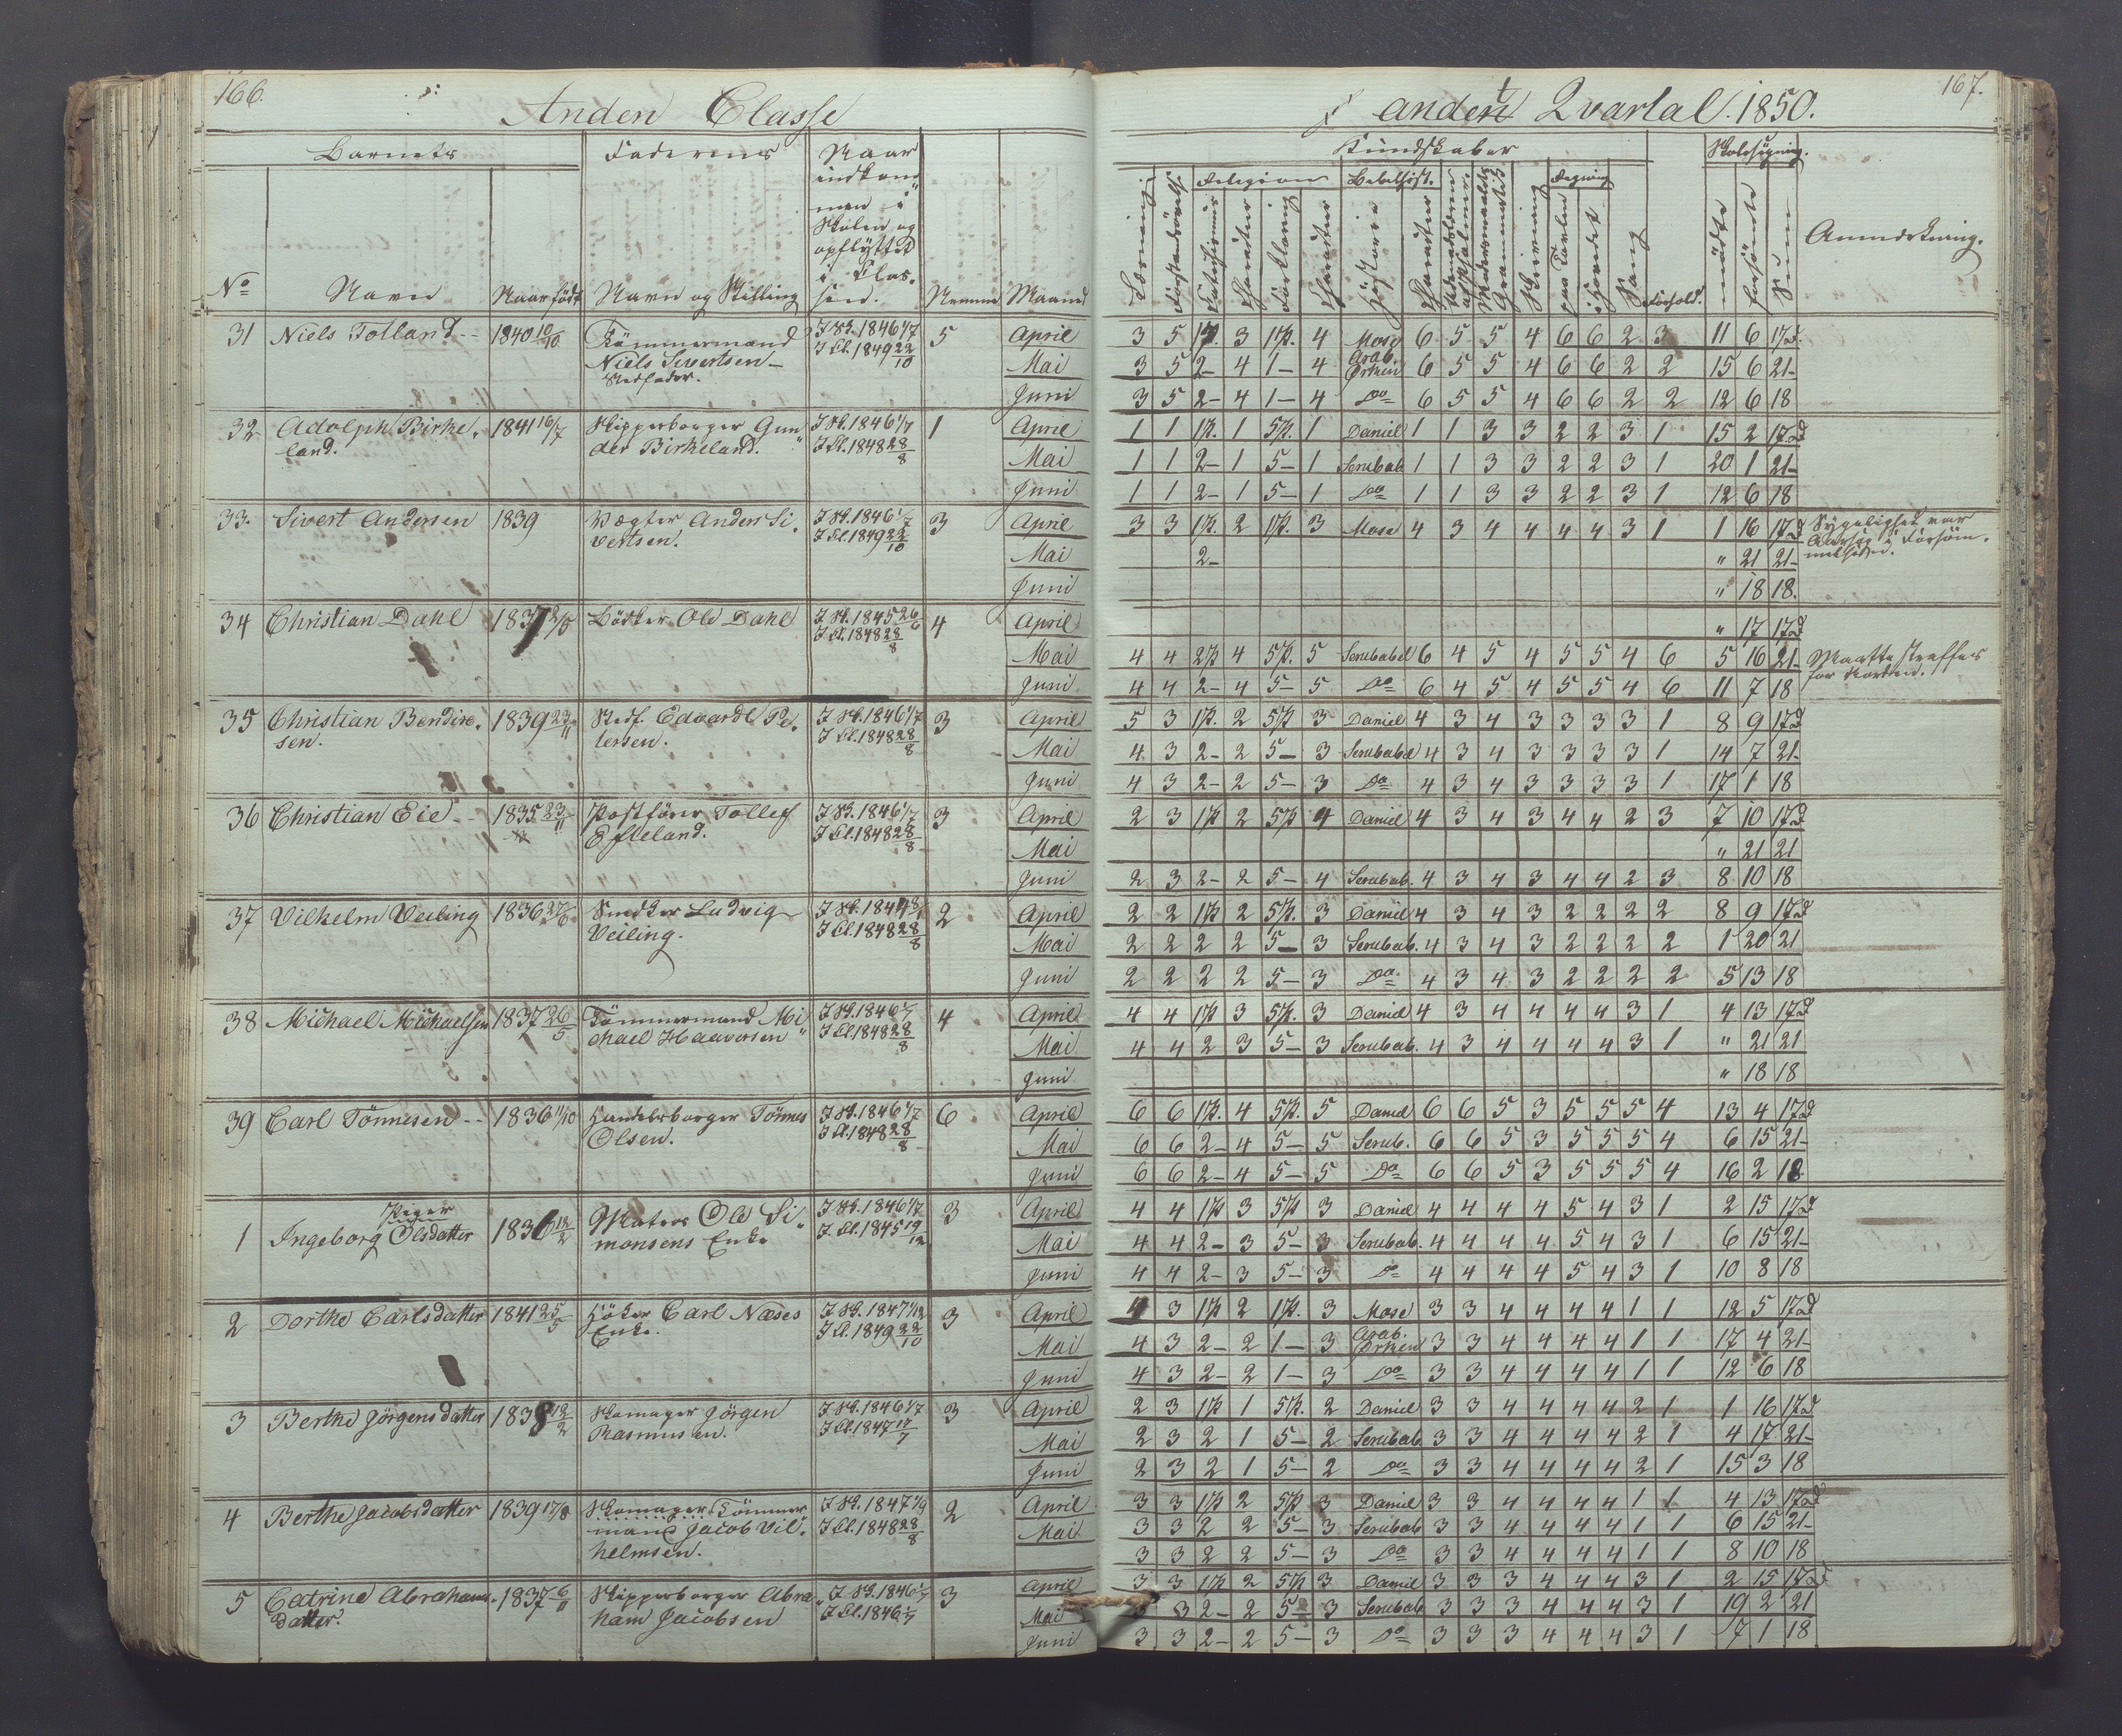 166.
Anden Classe
Barnets
Faderens
Naar indkommen i Skolen og opflyttet i Classen.
No
Navn
Naar født
Navn og Stilling
Nemme
Maaned
31 Niels Tolland -- 1840 10/10 Tömmermand I Sk. 1846 1/7 5 April
Niels Sivertsen - I Cl. 1849 22/10 Mai
Stedfader. Juni
32 Adolph Birke- 1841 16/7 Skipperborger Gun- I Sk. 1846 1/7 1 April
land. der Birkeland. I Cl. 1848 28/8 Mai
Juni
33. Sivert Andersen 1839 Vægter Anders Si- I Sk. 1846 1/7 3 April
vertsen. I Cl. 1849 22/10 Mai
Juni
34 Christian Dahl 1837 Bödker Ole Dahl I Sk. 1845 26/6 4 April
I Cl. 1848 28/8 Mai
Juni
35 Christian Bendix- 1839 23/11 Stedf. Edvard Pe- I Sk. 1846 1/7 3 April
sen. tersen. I Cl. 1848 28/8 Mai
Juni
36 Christian Eie -- 1835 23/11 Postförer Tollef I Sk. 1846 1/7 3 April
Efteland. I Cl. 1848 28/8 Mai
Juni
37 Vilhelm Veiling 1836 Snedker Ludvig I Sk. 184 2 April
Veiling. I Cl. 1848 28/8 Mai
Juni
38 Michael Michaelsen 1837 26/5 Tömmermand Mi- I Sk. 1846 1/7 4 April
chael Haaversen I Cl. 1848 28/8 Mai
Juni
39 Carl Tönnesen -- 1836 11/10 Handelsborger Tönnes I Sk. 1846 1/7 6 April
Olsen. I Cl. 1848 28/8 Mai
Juni
Piger
1 Ingeborg Olsdatter 1836 18/2 Matros Ole Si- I Sk. 1846 1/7 3 April
monsens Enke I Cl. 1845 19/12 Mai
Juni
2 Dorthe Carlsdatter 1841 25/5 Höker Carl Næses I Sk. 1847 1/12 3 April
Enke. I Cl. 1849 22/10 Mai
Juni
3 Berthe Jörgensdatter 1838 12/2 Skomager Jörgen I Sk. 1846 1/7 3 April
Rasmussen. I Cl. 1847 17/7 Mai
Juni
4 Berthe Jacobsdatter 1839 17/8 Skomager Tömmer- I Sk. 1847 1/9 2 April
mand Jacob Vil- I Cl. 1848 28/8 Mai
helmsen. Juni
5 Catrine Abrahams- 1837 6/11 Skipperborger Abra- I Sk. 1846 1/7 3 April
datter. ham Jacobsen I Cl. 1846 1/7 Mai
Juni
167.
I andet Qvartal. 1850.
Kundskaber
Skolesøgning.
Religion Bibelhist. Regning
Læsning
Forstandsövelse
Characteer
Forklaring
Characteer
Historie
Characteer
Skrivning
paa Tavlen
i Hovedet
Sang
Forhold.
mødte
forsömte
Sum
Anmærkning.
3 5 1 p. 3 1 p. 4 Mose 6 5 5 4 6 6 2 3 11 6 17 d.
3 5 2 - 4 1 - 4 Arab. Örken 6 5 5 4 6 6 2 2 15 6 21 -
3 5 2 - 4 1 - 4 Do 6 5 5 4 6 6 2 2 12 6 18
1 1 1 p. 1 5 p. 1 Daniel 1 1 3 3 2 2 3 1 15 2 17 d
1 1 2 - 1 5 - 1 Serubab 1 1 3 3 2 2 3 1 20 1 21 -
1 1 2 - 1 5 - 1 Do 1 1 3 3 2 2 3 1 12 6 18
3 3 1 p. 2 1 p. 3 Mose 4 3 4 4 4 4 3 1 1 16 17 d Sygelighed var Aarsag i Forsömmelsen.
2 - " 21 21 -
" 18 18.
" 17 17 d
4 4 2 p 4 5 p. 5 Serubabel 6 4 5 4 5 5 4 6 5 16 21 - Maatte straffes
4 4 2 - 4 5 - 5 Do 6 4 5 4 5 5 4 6 11 7 18
5 3 1 p. 2 5 p 3 Daniel 4 3 4 3 3 3 3 1 8 9 17 d
4 3 2 - 2 5 - 3 Serubabel 4 3 4 3 3 3 3 1 14 7 21 -
4 3 2 - 2 5 - 3 Do 4 3 4 3 3 3 3 1 17 1 18
2 3 1 p 2 5 p 4 Daniel 4 3 4 3 4 4 2 3 7 10 17 d
" 21 21
2 3 2 - 2 5 - 4 Serubab. 4 3 4 3 4 4 2 3 8 10 18
2 2 1 p 2 5 p. 3 Daniel 4 3 4 3 2 2 2 2 8 9 17 d
2 2 2 2 5 - 3 Serubab. 4 3 4 3 2 2 2 2 1 20 21
2 2 2 2 5 - 3 Do 4 3 4 3 2 2 2 2 5 13 18
4 4 1 p 3 5 p. 3 Daniel 4 3 4 4 4 4 3 1 4 13 17 d
4 4 2 3 5 - 3 Serubab. 4 3 4 4 4 4 3 1 " 21 21
" 18 18
6 6 1 p. 4 5 p. 5 Daniel 6 6 5 3 5 5 5 4 13 4 17 d
6 6 2 - 4 5 - 5 Serub. 6 6 5 3 5 5 5 4 6 15 21 -
6 6 2 - 4 5 - 5 Do 6 6 5 3 5 5 5 4 16 2 18
4 4 1 p 3 5 p 3 Daniel 4 4 4 4 5 4 3 1 2 15 17 d
4 4 2 - 3 5 - 3 Serubab. 4 4 4 4 5 4 3 1 6 15 21 -
4 4 2 - 3 5 - 3 Do 4 4 4 4 5 4 3 1 10 8 18
4 3 1 p 2 1 p. 3 Mose 3 3 4 4 4 4 1 1 12 5 17 d
4 3 2 - 2 1 - 3 Arab. Örken 3 3 4 4 4 4 1 1 17 4 21 -
4 3 2 - 2 1 - 3 Do 3 3 4 4 4 4 1 1 12 6 18
2 3 1 p 1 5 p. 2 Daniel 3 3 4 4 4 4 2 1 1 16 17 d
2 3 2 1 5 - 2 Serubab 3 3 4 4 4 4 2 1 4 17 21 -
2 3 2 1 5 - 2 Do 3 3 4 4 4 4 2 1 15 3 18
3 3 1 p 2 5 p 3 Daniel 3 3 4 4 4 4 1 1 4 13 17 d
3 3 2 2 5 - 3 Serubab 3 3 4 4 4 4 1 1 6 15 21 -
3 3 2 2 5 - 3 Do 3 3 4 4 4 4 1 1 8 10 18
3 3 1 p 2 5 p 3 Daniel 3 3 3 4 4 4 3 1 2 15 17 d
3 2 - 2 5 - 3 Serubab 3 3 3 4 4 4 3 1 19 2 21
3 3 2 - 2 5 - 3 Do 3 3 3 4 4 4 3 1 17 1 18